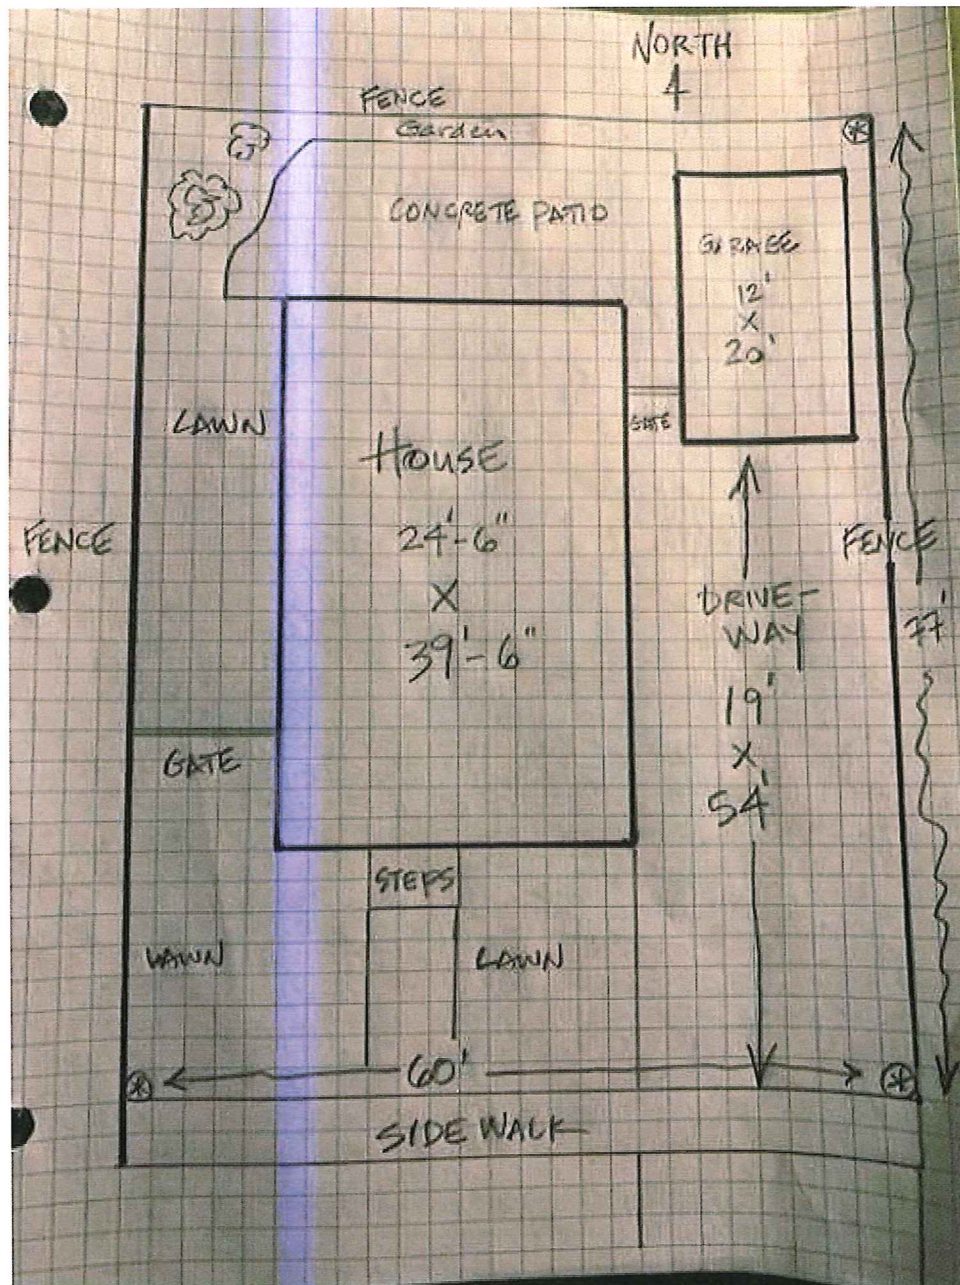 NORTH
FENCE
Garden
CONCRETE PATIO
GARAGE
12'
X
20'
LAWN
GATE
HOUSE
24'-6"
X
39'-6"
FENCE
FENCE
DRIVE-
WAY
77'
19'
X
54'
GATE
STEPS
LAWN
LAWN
60'
SIDE WALK